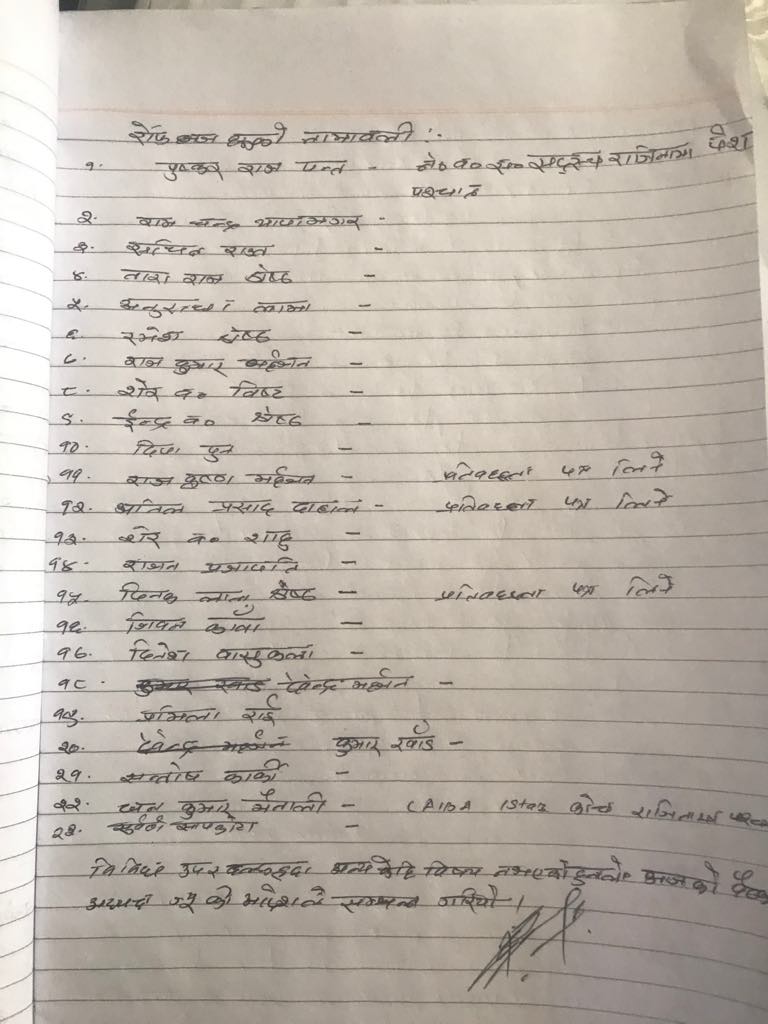 नामावली :-
१. पुष्कर राज पन्त - ने० ब० सं० सदस्य राजिनामा पेश
पश्चात
२. राम चन्द्र थापामगर -
३. सचिन राउत -
४. तारा राज श्रेष्ठ -
५. अनुराधा लामा -
६. रमेश श्रेष्ठ -
७. राज कुमार महर्जन -
८. शेर ब० विष्ट -
९. ईन्द्र ब० श्रेष्ठ -
१०. दिपा पुन -
११. राज कृष्ण महर्जन - प्रतिवद्धता पत्र लिने
१२. अनिल प्रसाद दाहाल - प्रतिवद्धता पत्र लिने
१३. शेर ब० शाहु -
१४. राजन प्रजापति -
१५. लाल श्रेष्ठ - प्रतिवद्धता पत्र लिने
१६. जिवन -
१७. दिनेश वासुकला -
१८. कुमार खाँड देवेन्द्र महर्जन -
१९. प्रमिला राई
२०. देवेन्द्र महर्जन कुमार खाँड -
२१. सन्तोष कार्की -
२२. कुमार मैनाली - राजिनामा
२३. सापकोटा -
उपर अन्य केहि विषय नभएको हुनाले आजको बैठक
अध्यक्ष ज्यू को आदेशले सम्पन्न गरियो ।